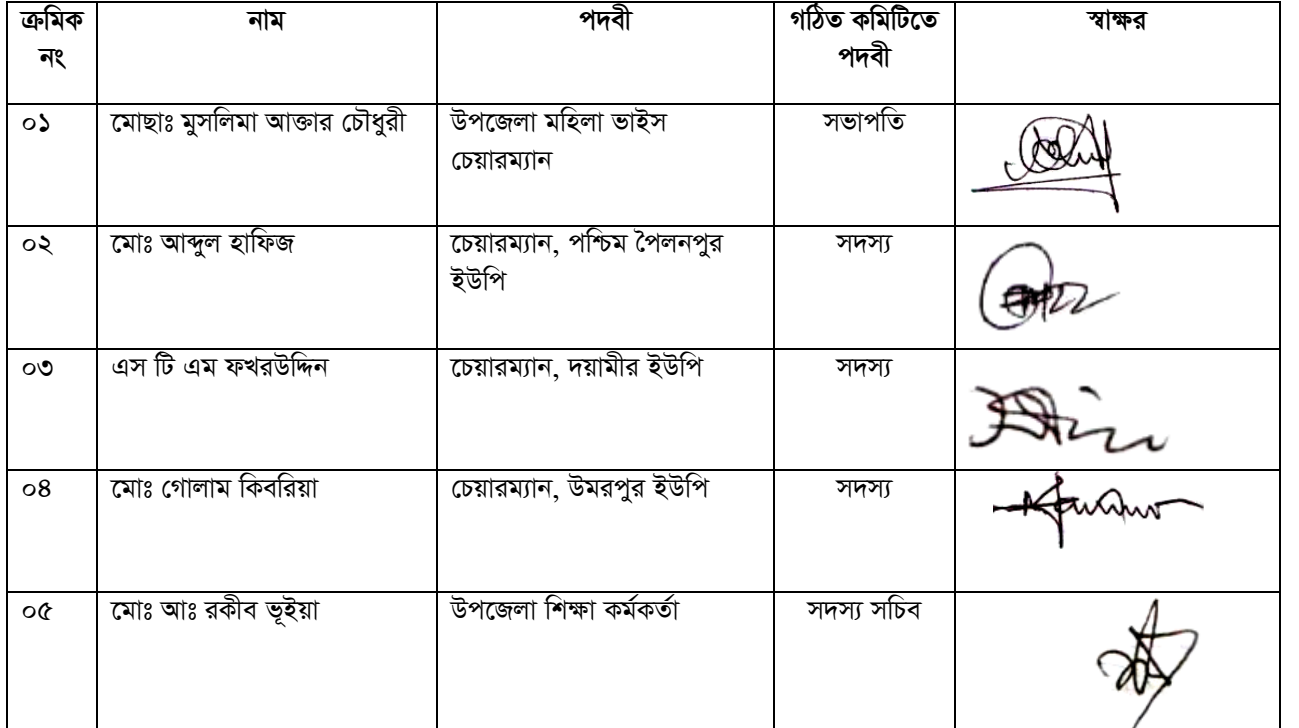 ক্রমিক নং	নাম	পদবী	গঠিত কমিটিতে পদবী	স্বাক্ষর
০১	মোছাঃ মুসলিমা আক্তার চৌধুরী	উপজেলা মহিলা ভাইস চেয়ারম্যান	সভাপতি
০২	মোঃ আব্দুল হাফিজ	চেয়ারম্যান, পশ্চিম পৈলনপুর ইউপি	সদস্য
০৩	এস টি এম ফখরউদ্দিন	চেয়ারম্যান, দয়ামীর ইউপি	সদস্য
০৪	মোঃ গোলাম কিবরিয়া	চেয়ারম্যান, উমরপুর ইউপি	সদস্য
০৫	মোঃ আঃ রকীব ভূইয়া	উপজেলা শিক্ষা কর্মকর্তা	সদস্য সচিব